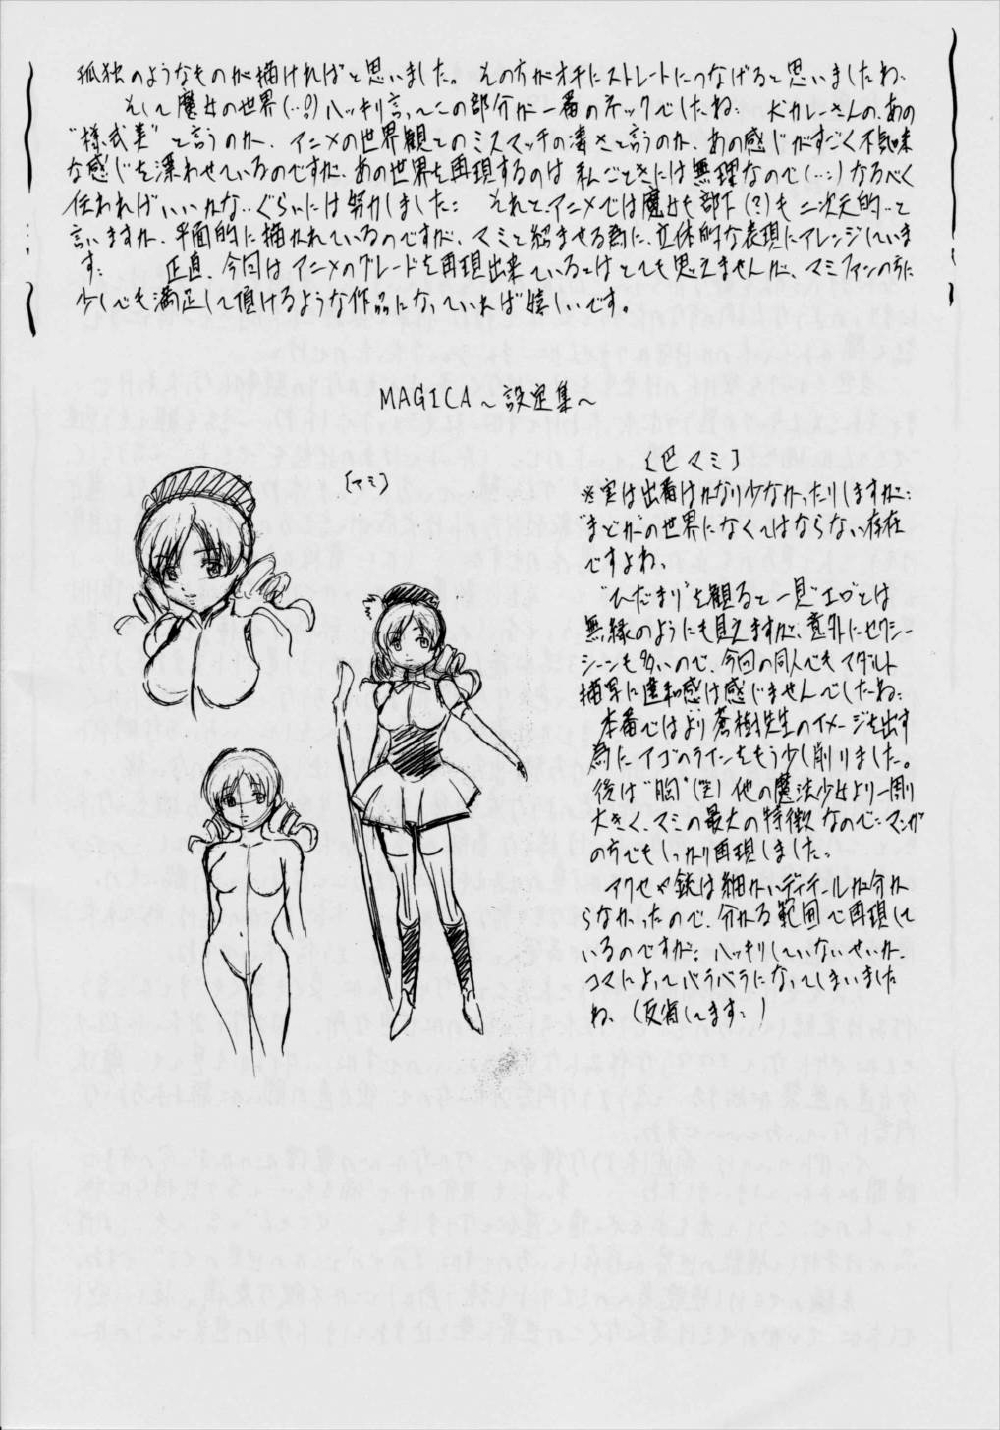 孤独のようなものが描ければと思いました。その方がオチにストレートにつなげると思いましたね、
そして魔女の世界(…?)ハッキリ言ってこの部分が一番のネックでしたね… 犬カレーさんの、あの
"様式美"と言うのか、アニメの世界観とのミスマッチの凄さと言うのか、あの感じがすごく不気味
な感じを漂わせているのですが、あの世界を再現するのは私ごときには無理なので(…)なるべく
似ればいいかな…ぐらいには努力しました… それと、アニメでは魔女も部下(?)も二次元的…と
言いますか、平面的に描かれているのですが、マミと絡ませる為に、立体的な表現にアレンジしていま
す… 正直、今回はアニメのグレードを再現出来ているとはとても思えませんが、マミファンの方に
少しでも満足して頂けるような作品になっていれば嬉しいです。
MAGICA〜設定集〜
[マミ]
[巴マミ]
※実は出番はかなり少なかったりしますが…
"まどか"の世界になくてはならない存在
ですよね、
"ひだまり"を観ると一見"エロ"とは
無縁のようにも見えますが、意外にセクシー
シーンも多いので、今回の同人でもアダルト
描写に違和感は感じませんでしたね…
本番ではより蒼樹先生のイメージを出す
為にアゴのラインをもう少し削りました。
後は"胸"(笑)他の魔法少女より一回り
大きく、マミの最大の特徴なので…マンガ
の方でもしっかり再現しました。
アクセや銃は細かいディテールが分か
らなかったので、分かる範囲で再現して
いるのですが… ハッキリしていないせいか、
コマによってバラバラになってしまいました
ね、(反省してます…)